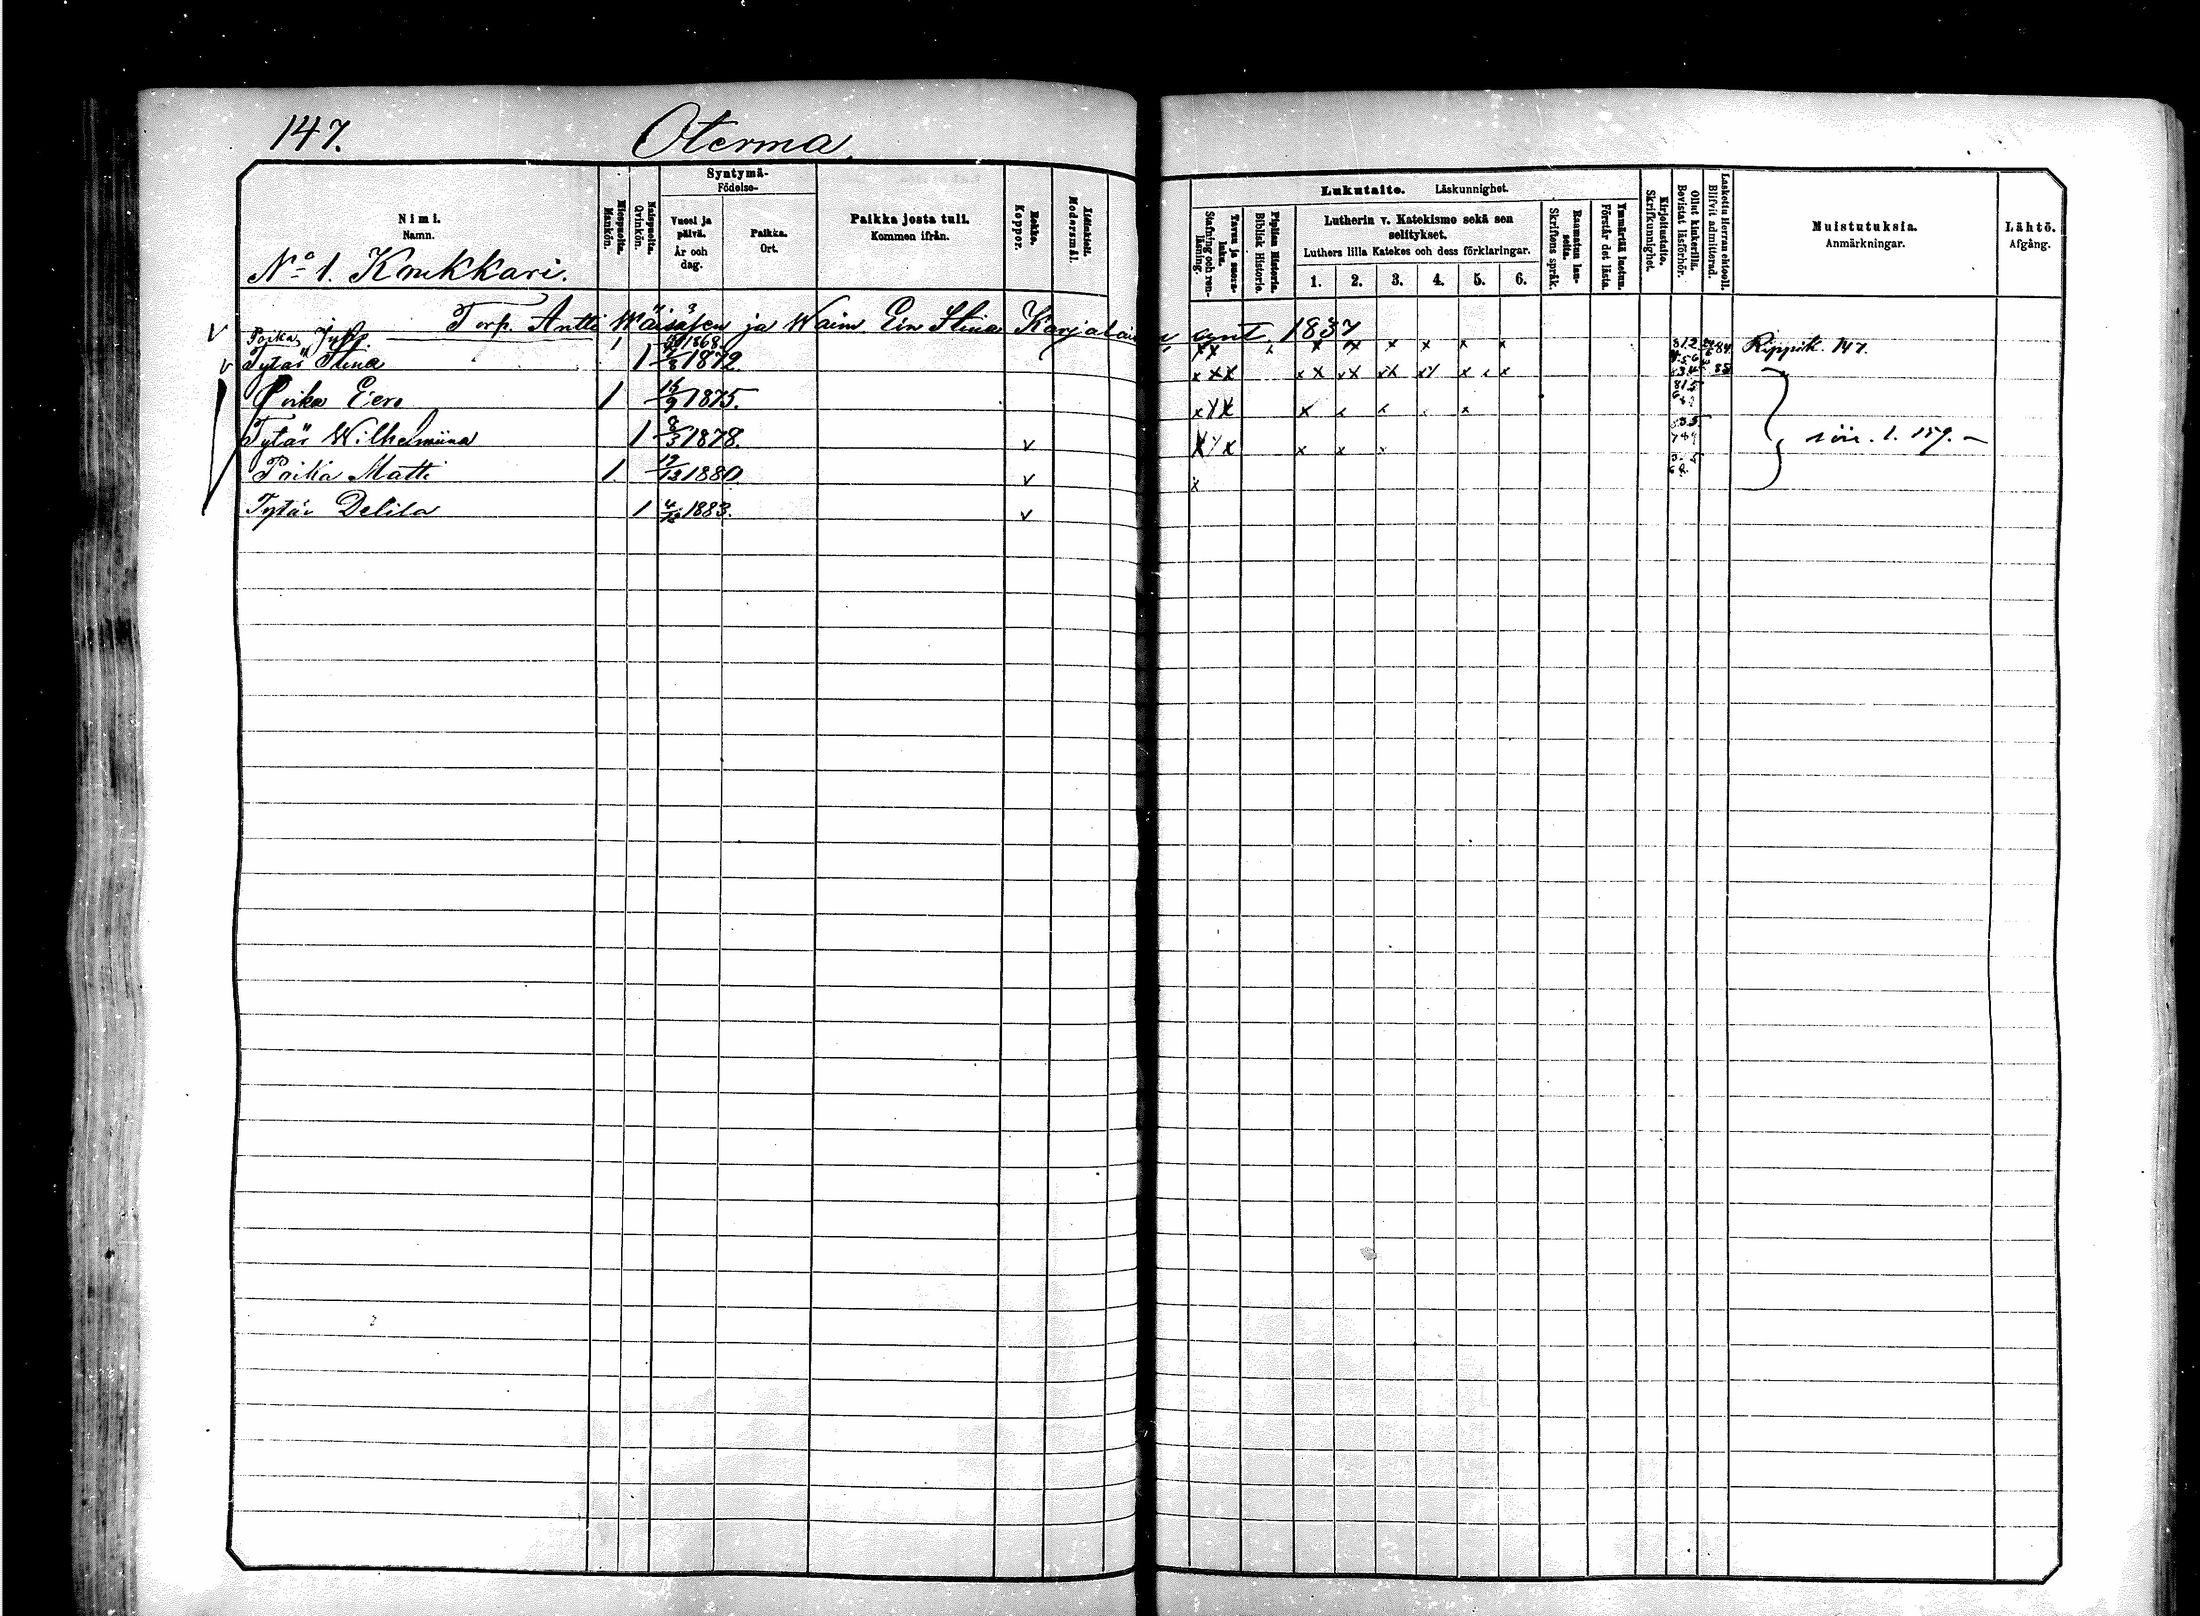 147.
Oterma.
Nimi.
Namn.
Miespuolta.
Mankön.
Naispuolta.
Qvinkön.
Syntymä-
Födelse-
Vuosi ja päivä.
År och dag.
Paikka.
Ort.
Paikka josta tuli.
Kommen ifrån.
Rokko.
Koppor.
Äidinkieli.
Modersmål.
Lukutaito. Läskunnighet.
Tavuu ja suora-luku.
Stafning och ren-läsning.
Piplian Historia.
Biblisk Historie.
Lutherin v. Katekismo sekä sen selitykset.
Luthers lilla Katekes och dess förklaringar.
1. 2. 3. 4. 5. 6.
Raamatun lau-seita.
Skriftens språk.
Ymmärtää luetun.
Förstår det lästa.
Kirjoitustaito.
Skrifkunnighet.
Ollut kinkerillä.
Bevistat läsförhör.
Laskettu Herran ehtooll.
Blifvit admitterad.
Muistutuksia.
Anmärkningar.
Lähtö.
Afgång.
No 1. Knukkari.
Torp. Antti Waisasen ja Waim. Eva Stina Karjalainen synt. 1837
Poika 1 1868. Rippik. 147.
Tytär Stina 1 1872.
Poika Eero 1 15/9 1875.
Tytär Wilhelmiina 1 8/3 1878. v siv. 1. 159.
Poika Matti 1. 17/12 1880 v
Tytär Delila 1 4/12 1883. v